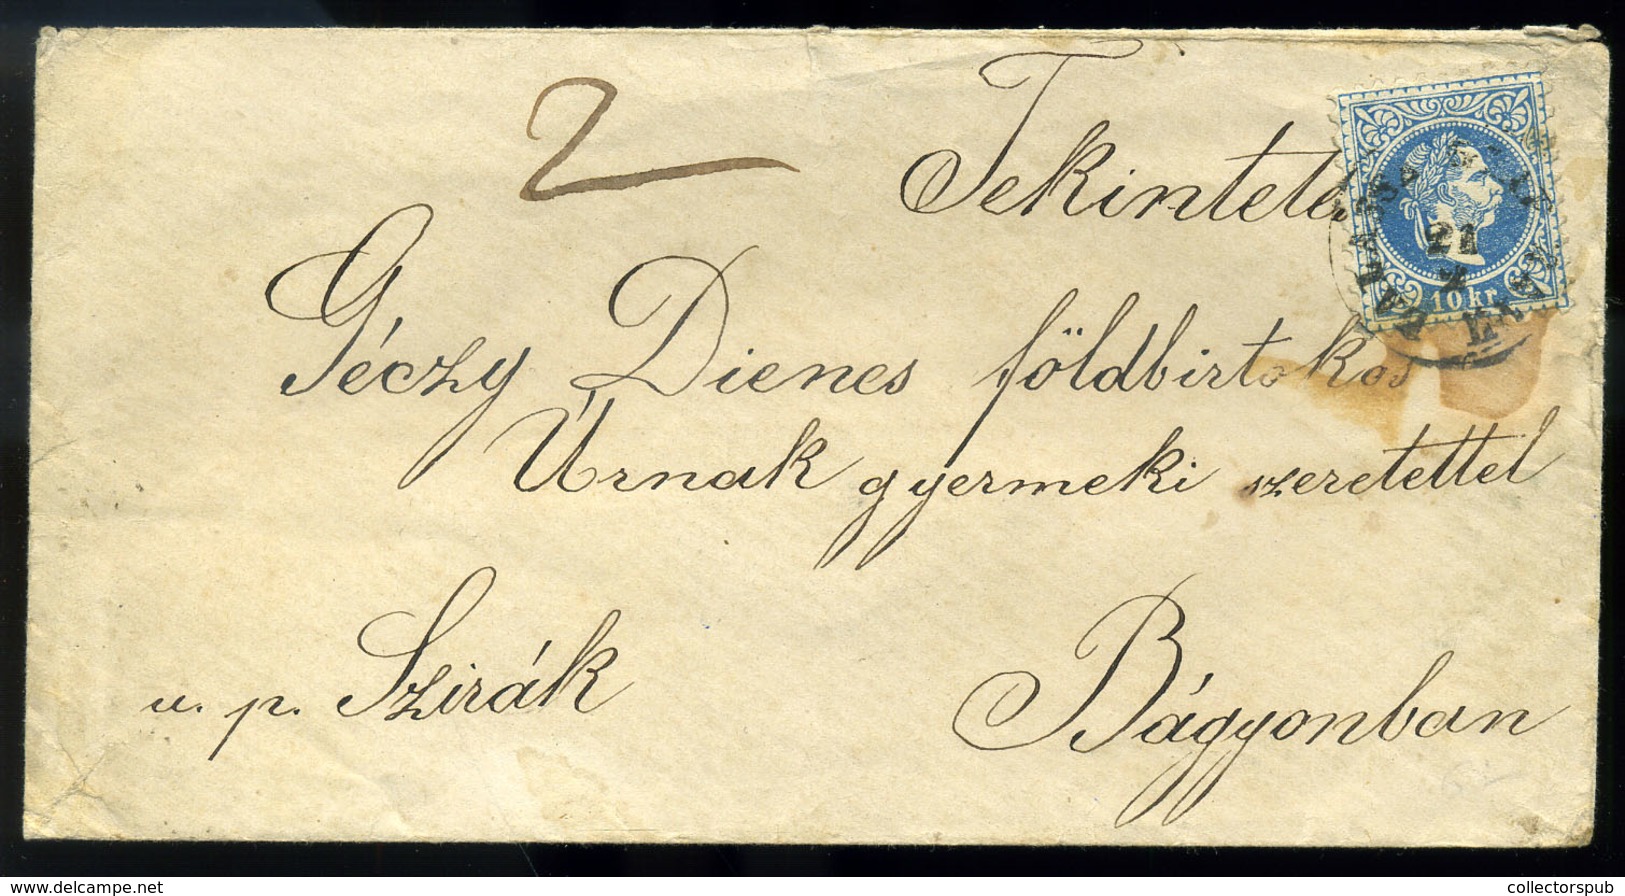 2
Tekintetes
Géczy Dienes földbirtokos
Úrnak gyermeki szeretettel
u. p. Szirák
Bágyonban
21
10 kr
collectorspub